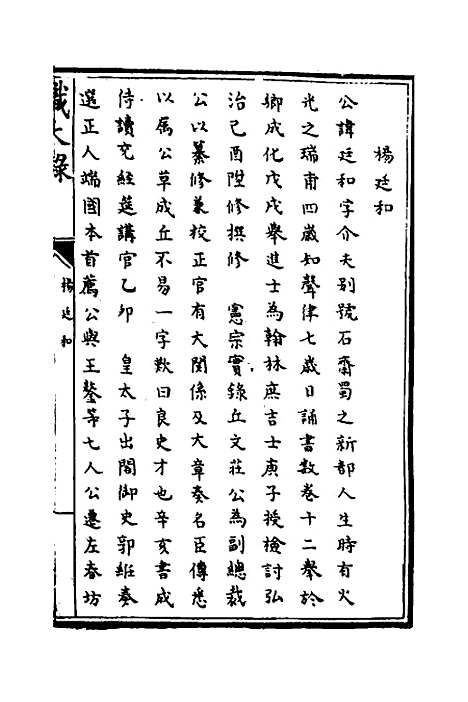 楊廷和
公諱廷和字介夫别號石齋蜀之新都人生時有火
光之瑞甫四歲知聲律七歲日誦書數卷十二舉於
鄉成化戊戌舉進士為翰林庶吉士庚子授檢討弘
治己酉陞修撰修　憲宗實錄丘文莊公為副總裁
公以纂修兼校正官有大関係及大章奏名臣傳悉
以属公草成丘不易一字歎曰良史才也辛亥書成
侍讀充經筵講官乙卯　皇太子出閣御史郭維奏
選正人端國本首薦公與王鏊等七人公遷左春坊
大錄
楊廷和